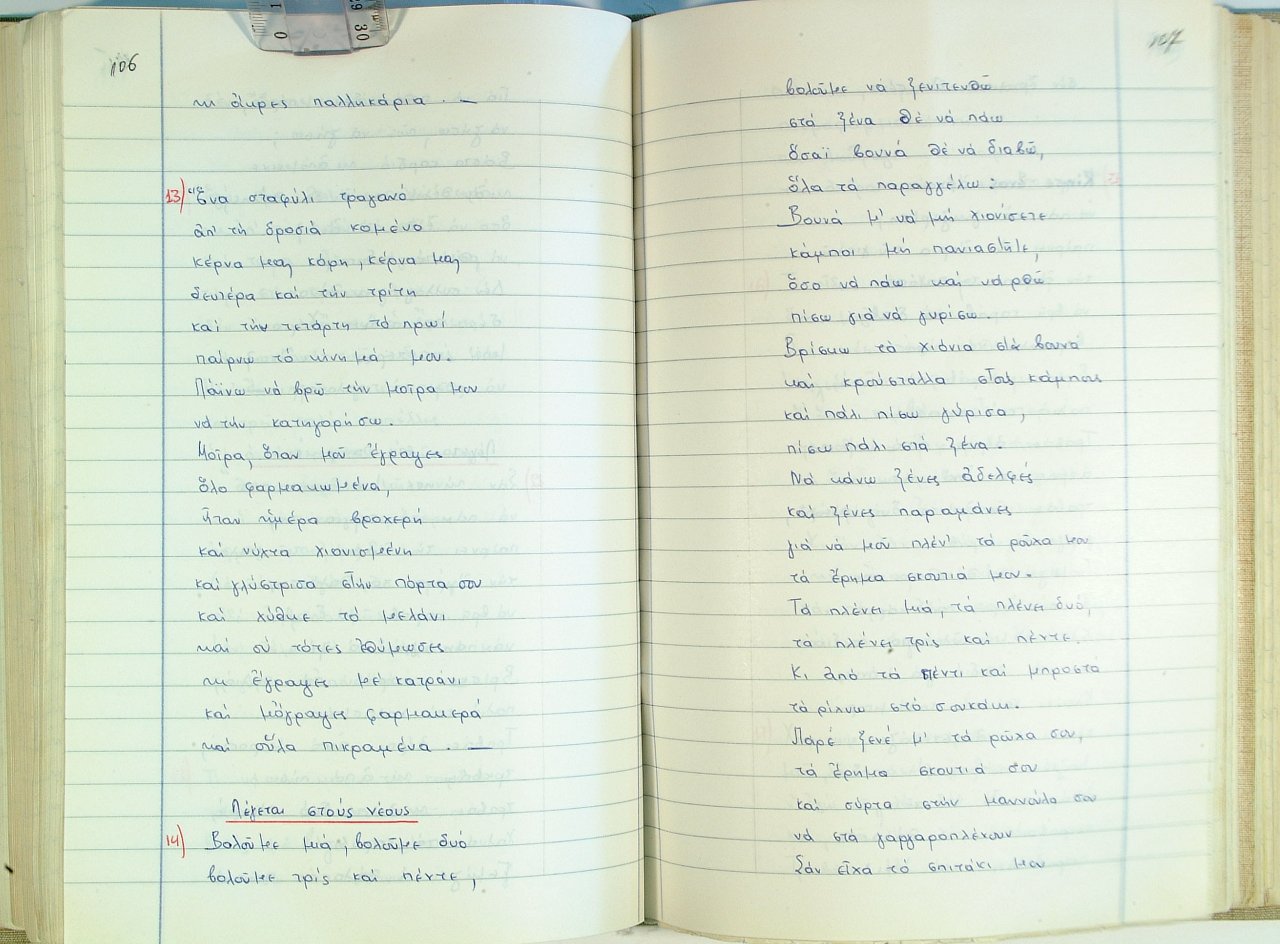 106
κι ἄκρες παλληκάρια . —
13) Ἕνα σταφύλι τραγανό
ἀπ' τή δροσιά κομένο
κέρνα μας κόρη, κέρνα μας
δευτέρα καί τήν τρίτη
καί τήν τετάρτη τό πρωί
παίρνω τό κίνημά μου.
Πάϊνω νά βρῶ τήν μοῖρα μου
νά τήν κατηγορήσω.
Μοῖρα, ὅταν μοῦ ἔγραψες
ὅλο φαρμακωμένα,
ἦταν ἡμέρα βροχερή
καί νύχτα χιονισμένη
καί γλύστρισα στήν πόρτα σου
καί χύθηκε τό μελάνι
καί σύ τότες ἐθύμωσες
κι ἔγραψες μέ κατράνι
καί μὄγραψες φαρμακερά
καί οὗλα πικραμένα . —
Λέγεται στούς νέους
14) Βολοῦμε μιά, βολοῦμε δυό
βολοῦμε τρίς καί πέντε,
107
βολοῦμε νά ξενιτευθῶ
στά ξένα θέ νά πάω
ὅσαϊ βουνά θέ νά διαβῶ,
ὅλα τά παραγγέλω:
Βουνά μ' νά μή χιονίσετε
κάμποι μή πανιαστῆτε,
ὅσο νά πάω καί νά ρθῶ
πίσω γιά νά γυρίσω.
Βρίσκω τά χιόνια στά βουνά
καί κρούσταλλα στούς κάμπους
καί πάλι πίσω γύρισα,
πίσω πάλι στά ξένα.
Νά κάνω ξένες ἀδελφές
καί ξένες παραμάνες
γιά νά μοῦ πλέν' τά ροῦχα μου
τά ἔρημα σκουτιά μου.
Τά πλένει μιά, τά πλένει δυό,
τά πλένει τρίς καί πέντε.
Κι ἀπό τά πέντι καί μπροστά
τά ρίχνω στό σουκάκι.
Παρέ ξενέ μ' τά ροῦχα σου,
τά ἔρημα σκουτιά σου
καί σύρτα στήν μαννούλα σου
νά στά γαργαροπλένουν
Σάν εἶχα τό σπιτάκι μου